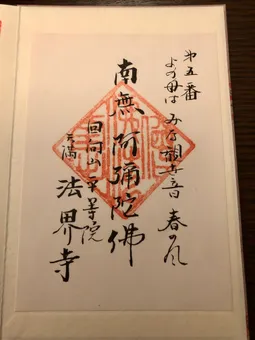 第五番
よの母は みな観世音 春の風
南無阿弥陀佛
回向山 平等院
法界寺